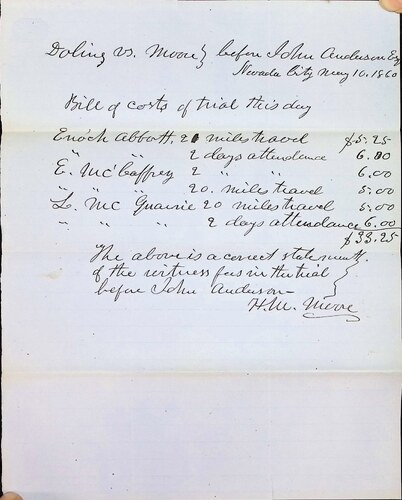 Doling vs. Moore } before John Anderson Esq
Nevada City May 10. 1860
Bill of costs of trial this day
Enoch Abbott, 21 miles travel $5.25
" " 2 days attendance 6.00
E. McCaffrey 2 " " 6.00
" " 20. miles travel 5.00
L. McGuairie 20 miles travel 5.00
" " " 2 days attendance 6.00
$33.25
The above is a correct statement
of the witness fees in the trial
before John Anderson—
H. M. Moore